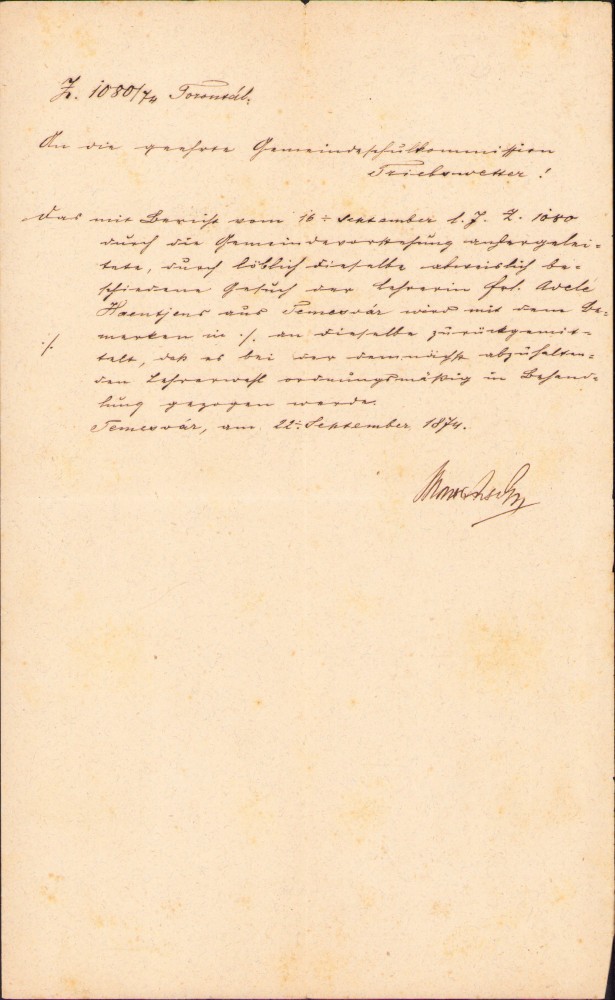 Z. 1080/74 Torontál.
An die geehrte Gemeindeschulkommission
Triebswetter!
Das mit Bericht vom 16: September l. J. Z. 1080
durch die Gemeindevorstehung anhergelei-
tete, durch löblich dieselbe abweislich be-
schiedene Gesuch der Lehrerin Frl. Adele
Haentjens aus Temesvár wird mit dem Be-
merken in ./. an dieselbe zurückgemit-
./.
telt, daß es bei der demnächst abzuhalten-
den Lehrerwahl ordnungsmäßig in Behand-
lung gezogen werde.
Temesvár, am 22: September 1874.